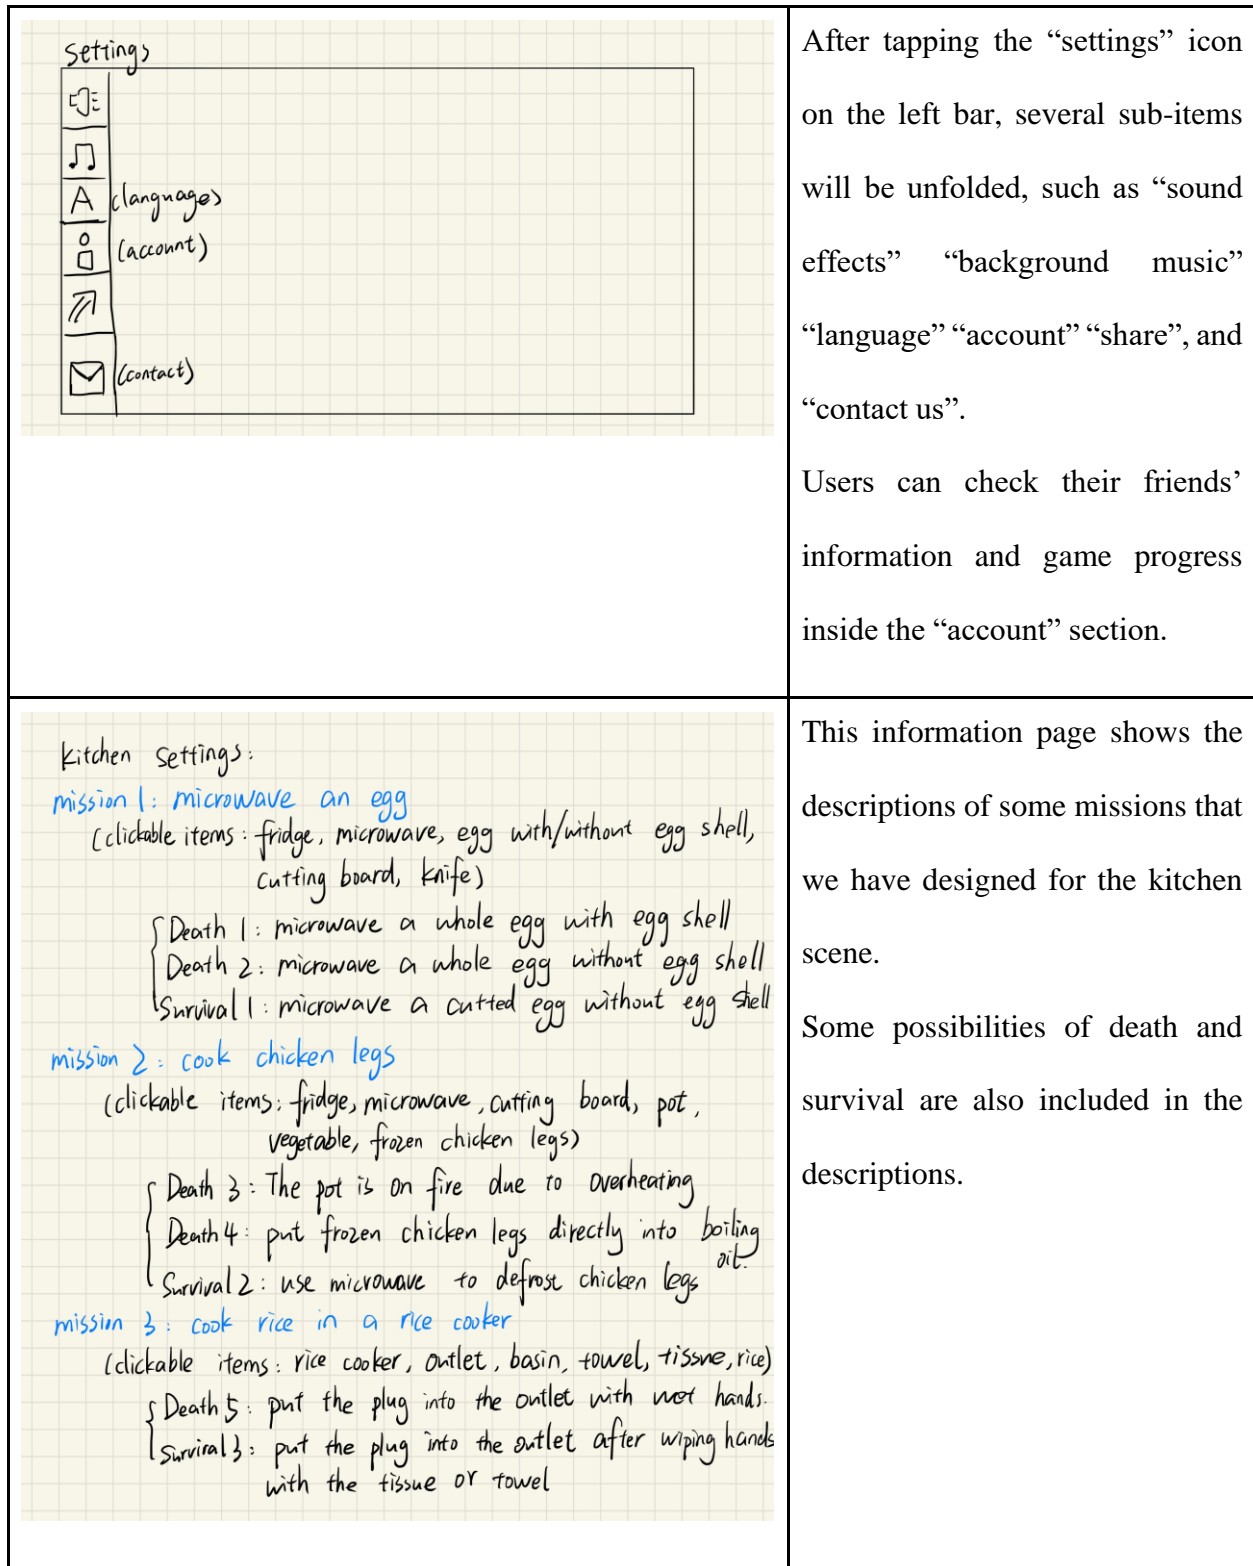 Settings
A (languages)
(account)
(contact)
After tapping the “settings” icon
on the left bar, several sub-items
will be unfolded, such as “sound
effects” “background music”
“language” “account” “share”, and
“contact us”.
Users can check their friends’
information and game progress
inside the “account” section.
kitchen settings:
mission 1: microwave an egg
(clickable items: fridge, microwave, egg with/without egg shell,
cutting board, knife)
Death 1: microwave a whole egg with egg shell
Death 2: microwave a whole egg without egg shell
Survival 1: microwave a cutted egg without egg shell
mission 2: cook chicken legs
(clickable items: fridge, microwave, cutting board, pot,
vegetable, frozen chicken legs)
Death 3: The pot is on fire due to overheating
Death 4: put frozen chicken legs directly into boiling
oil.
Survival 2: use microwave to defrost chicken legs
mission 3: cook rice in a rice cooker
(clickable items: rice cooker, outlet, basin, towel, tissue, rice)
Death 5: put the plug into the outlet with wet hands.
Survival 3: put the plug into the outlet after wiping hands
with the tissue or towel
This information page shows the
descriptions of some missions that
we have designed for the kitchen
scene.
Some possibilities of death and
survival are also included in the
descriptions.